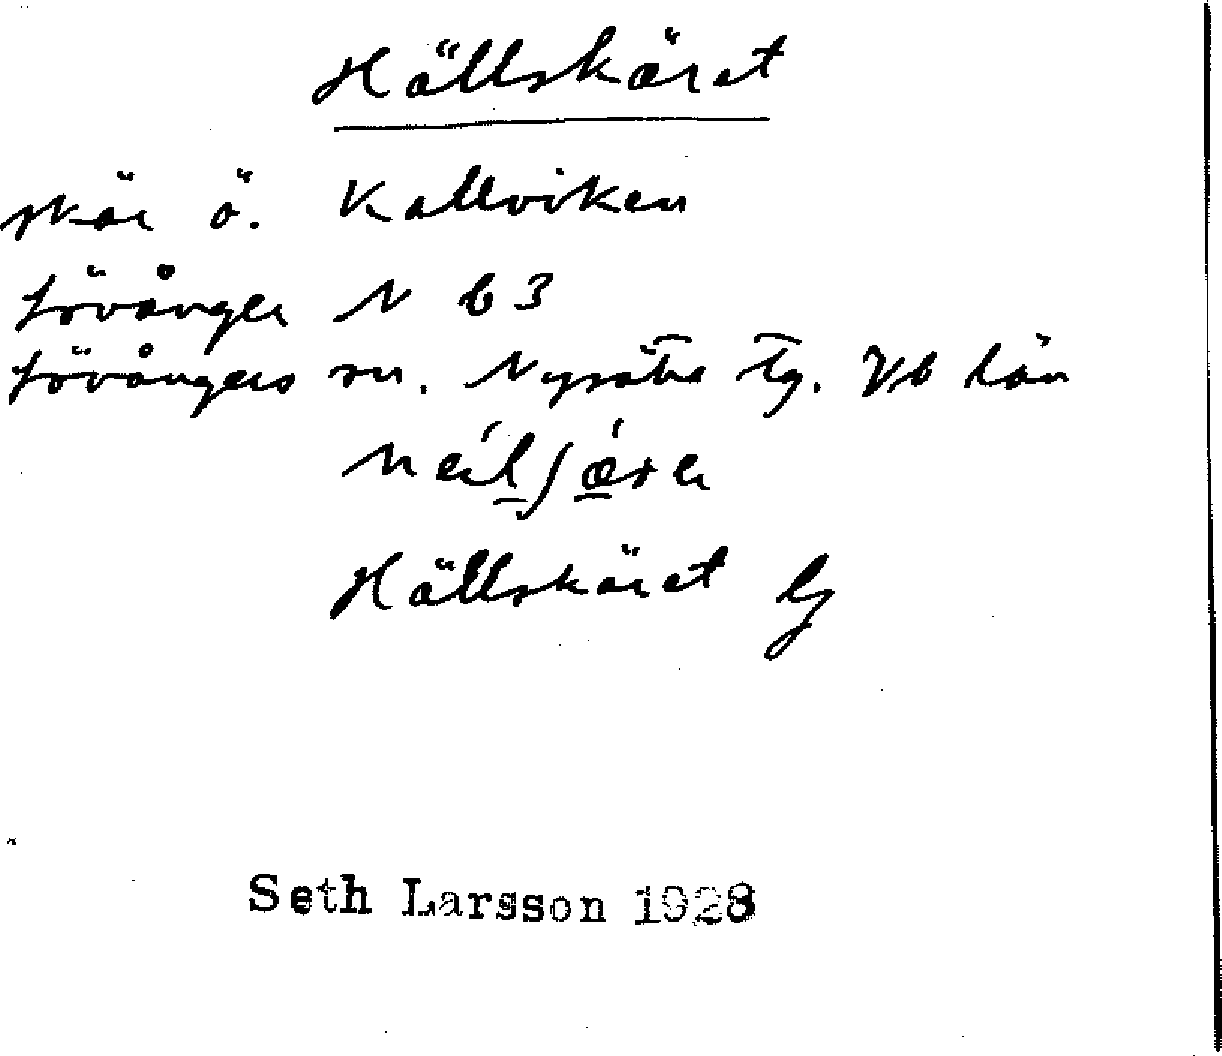 Hällskäret
skär ö. Kallviken
Lövånger N b 3
Lövångers sn. Nysätra tg. Vb län
Hällskäret
Seth Larsson 1928